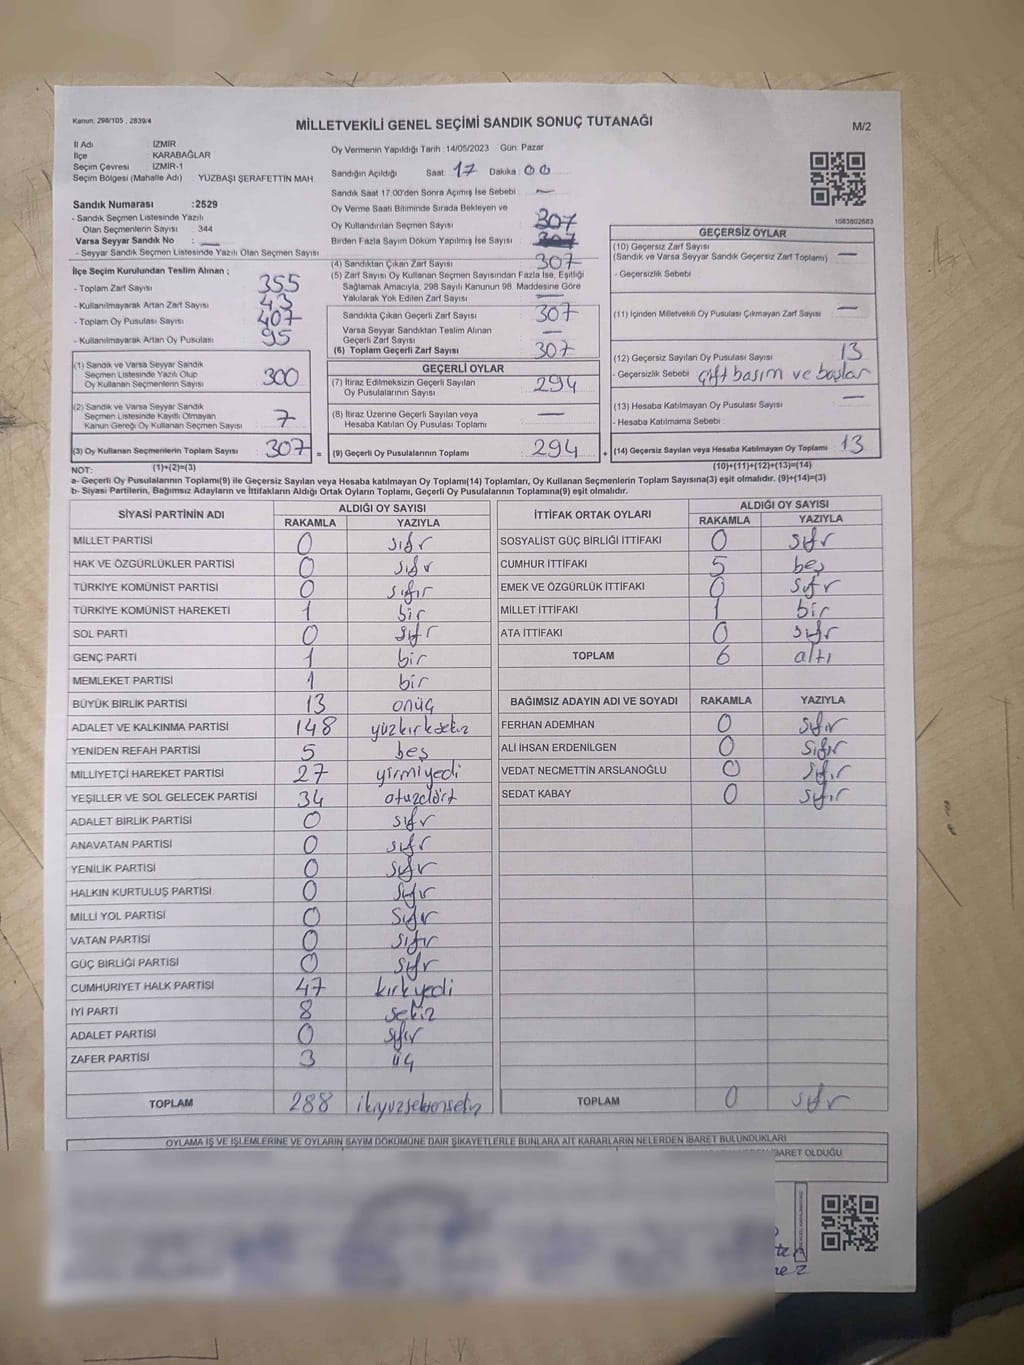 Kanun: 298/105 , 2839/4
MİLLETVEKİLİ GENEL SEÇİMİ SANDIK SONUÇ TUTANAĞI
M/2
İl Adı İZMİR
İlçe KARABAĞLAR
Seçim Çevresi İZMİR-1
Seçim Bölgesi (Mahalle Adı) : YÜZBAŞI ŞERAFETTİN MAH
Sandık Numarası :2529
- Sandık Seçmen Listesinde Yazılı
Olan Seçmenlerin Sayısı : 344
Varsa Seyyar Sandık No : —
- Seyyar Sandık Seçmen Listesinde Yazılı Olan Seçmen Sayısı
Oy Vermenin Yapıldığı Tarih : 14/05/2023 Gün: Pazar
Sandığın Açıldığı Saat : 17 Dakika : 00
Sandık Saat 17.00'den Sonra Açımış İse Sebebi : —
Oy Verme Saati Bitiminde Sırada Bekleyen ve
Oy Kullandırılan Seçmen Sayısı 307
Birden Fazla Sayım Döküm Yapılmış İse Sayısı :
1083602663
İlçe Seçim Kurulundan Teslim Alınan ;
- Toplam Zarf Sayısı 355
- Kullanılmayarak Artan Zarf Sayısı 43
- Toplam Oy Pusulası Sayısı 407
- Kullanılmayarak Artan Oy Pusulası 95
(1) Sandık ve Varsa Seyyar Sandık
Seçmen Listesinde Yazılı Olup
Oy Kullanan Seçmenlerin Sayısı 300
(2) Sandık ve Varsa Seyyar Sandık
Seçmen Listesinde Kayıtlı Olmayan
Kanun Gereği Oy Kullanan Seçmen Sayısı 7
(3) Oy Kullanan Seçmenlerin Toplam Sayısı 307 =
(4) Sandıktan Çıkan Zarf Sayısı 307
(5) Zarf Sayısı Oy Kullanan Seçmen Sayısından Fazla İse, Eşitliği
Sağlamak Amacıyla, 298 Sayılı Kanunun 98. Maddesine Göre
Yakılarak Yok Edilen Zarf Sayısı —
Sandıkta Çıkan Geçerli Zarf Sayısı 307
Varsa Seyyar Sandıktan Teslim Alınan
Geçerli Zarf Sayısı —
(6) Toplam Geçerli Zarf Sayısı 307
GEÇERLİ OYLAR
(7) İtiraz Edilmeksizin Geçerli Sayılan
Oy Pusulasının Sayısı 294
(8) İtiraz Üzerine Geçerli Sayılan veya
Hesaba Katılan Oy Pusulası Toplamı —
(9) Geçerli Oy Pusulalarının Toplamı 294 +
GEÇERSİZ OYLAR
(10) Geçersiz Zarf Sayısı
(Sandık ve Varsa Seyyar Sandık Geçersiz Zarf Toplamı) —
- Geçersizlik Sebebi
(11) İçinden Milletvekili Oy Pusulası Çıkmayan Zarf Sayısı —
(12) Geçersiz Sayılan Oy Pusulası Sayısı 13
- Geçersizlik Sebebi çift basım ve boşlar
(13) Hesaba Katılmayan Oy Pusulası Sayısı —
- Hesaba Katılmama Sebebi
(14) Geçersiz Sayılan veya Hesaba Katılmayan Oy Toplamı 13
NOT: (1)+(2)=(3) (10)+(11)+(12)+(13)=(14)
a- Geçerli Oy Pusulalarının Toplamı(9) ile Geçersiz Sayılan veya Hesaba katılmayan Oy Toplamı(14) Toplamları, Oy Kullanan Seçmenlerin Toplam Sayısına(3) eşit olmalıdır. (9)+(14)=(3)
b- Siyasi Partilerin, Bağımsız Adayların ve İttifakların Aldığı Ortak Oyların Toplamı, Geçerli Oy Pusulalarının Toplamına(9) eşit olmalıdır.
SİYASİ PARTİNİN ADI ALDIĞI OY SAYISI
RAKAMLA YAZIYLA
MİLLET PARTİSİ 0 sıfır
HAK VE ÖZGÜRLÜKLER PARTİSİ 0 sıfır
TÜRKİYE KOMÜNİST PARTİSİ 0 sıfır
TÜRKİYE KOMÜNİST HAREKETİ 1 bir
SOL PARTİ 0 sıfır
GENÇ PARTİ 1 bir
MEMLEKET PARTİSİ 1 bir
BÜYÜK BİRLİK PARTİSİ 13 onüç
ADALET VE KALKINMA PARTİSİ 148 yüzkırksekiz
YENİDEN REFAH PARTİSİ 5 beş
MİLLİYETÇİ HAREKET PARTİSİ 27 yirmiyedi
YEŞİLLER VE SOL GELECEK PARTİSİ 34 otuzdört
ADALET BİRLİK PARTİSİ 0 sıfır
ANAVATAN PARTİSİ 0 sıfır
YENİLİK PARTİSİ 0 sıfır
HALKIN KURTULUŞ PARTİSİ 0 sıfır
MİLLİ YOL PARTİSİ 0 sıfır
VATAN PARTİSİ 0 sıfır
GÜÇ BİRLİĞİ PARTİSİ 0 sıfır
CUMHURİYET HALK PARTİSİ 47 kırkyedi
İYİ PARTİ 8 sekiz
ADALET PARTİSİ 0 sıfır
ZAFER PARTİSİ 3 üç
TOPLAM 288 ikiyüzseksensekiz
İTTİFAK ORTAK OYLARI ALDIĞI OY SAYISI
RAKAMLA YAZIYLA
SOSYALİST GÜÇ BİRLİĞİ İTTİFAKI 0 sıfır
CUMHUR İTTİFAKI 5 beş
EMEK VE ÖZGÜRLÜK İTTİFAKI 0 sıfır
MİLLET İTTİFAKI 1 bir
ATA İTTİFAKI 0 sıfır
TOPLAM 6 altı
BAĞIMSIZ ADAYIN ADI VE SOYADI RAKAMLA YAZIYLA
FERHAN ADEMHAN 0 sıfır
ALİ İHSAN ERDENİLGEN 0 sıfır
VEDAT NECMETTİN ARSLANOĞLU 0 sıfır
SEDAT KABAY 0 sıfır
TOPLAM 0 sıfır
OYLAMA İŞ VE İŞLEMLERİNE VE OYLARIN SAYIM DÖKÜMÜNE DAİR ŞİKAYETLERLE BUNLARA AİT KARARLARIN NELERDEN İBARET BULUNDUKLARI
İBARET OLDUĞU